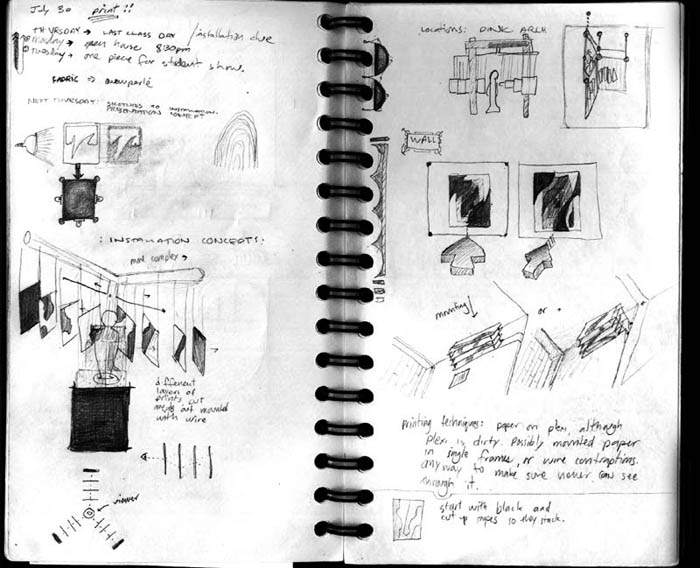 July 30 print!!
THURSDAY → LAST CLASS DAY / installation due
Tuesday → open house 8:30pm
Tuesday → one piece for student show.
NEXT THURSDAY: SKETCHES TO INSTALLATION
PRESENTATIONS CONCEPT
: INSTALLATION CONCEPTS:
more complex →
different
layers of
prints cut
and mounted
with wire
viewer
LOCATIONS: DINK ARCH
WALL
mounting
or
Printing techniques: paper on plex, although
plex is dirty. Possibly mounted paper
in single frames, or wire contraptions.
anyway to make sure viewer can see
through it.
start with black and
cut up so they stack.